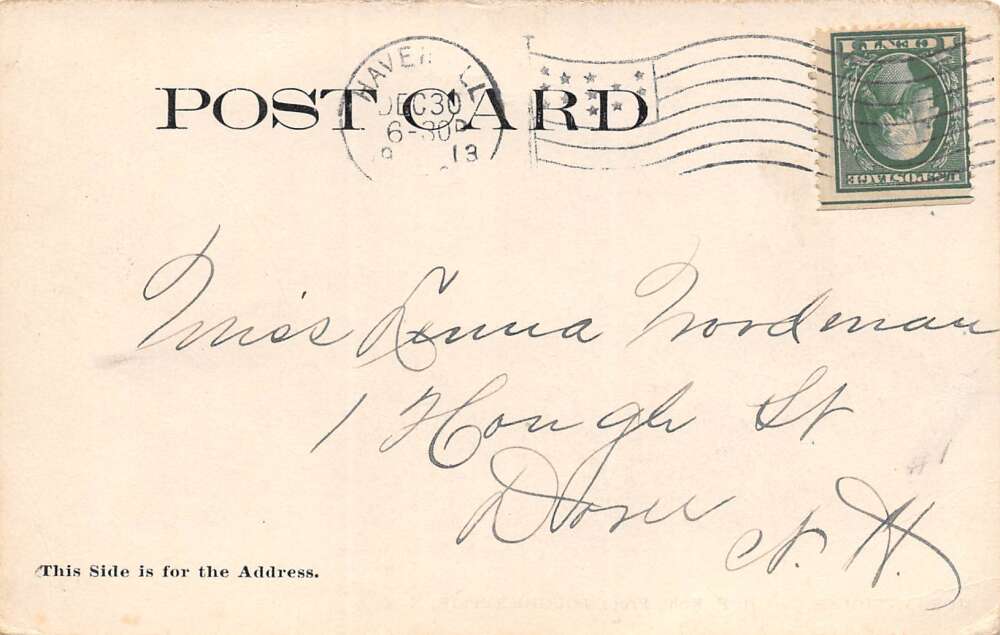 POST CARD
HAVER
DEC 30
6-30P
13
1 CENT 1
U.S. POSTAGE
Miss Lenna Woodman
1 Hough St
Dover
N. H.
#1
This Side is for the Address.